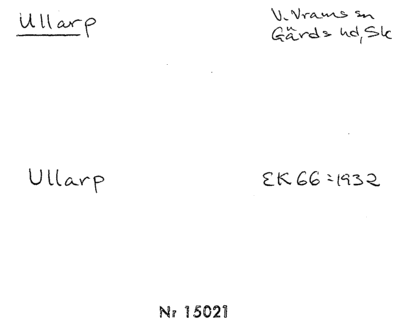 Ullarp
V. Vrams sn
Gärds hd, Sk
Ullarp
EK66=1932
Nr 15021